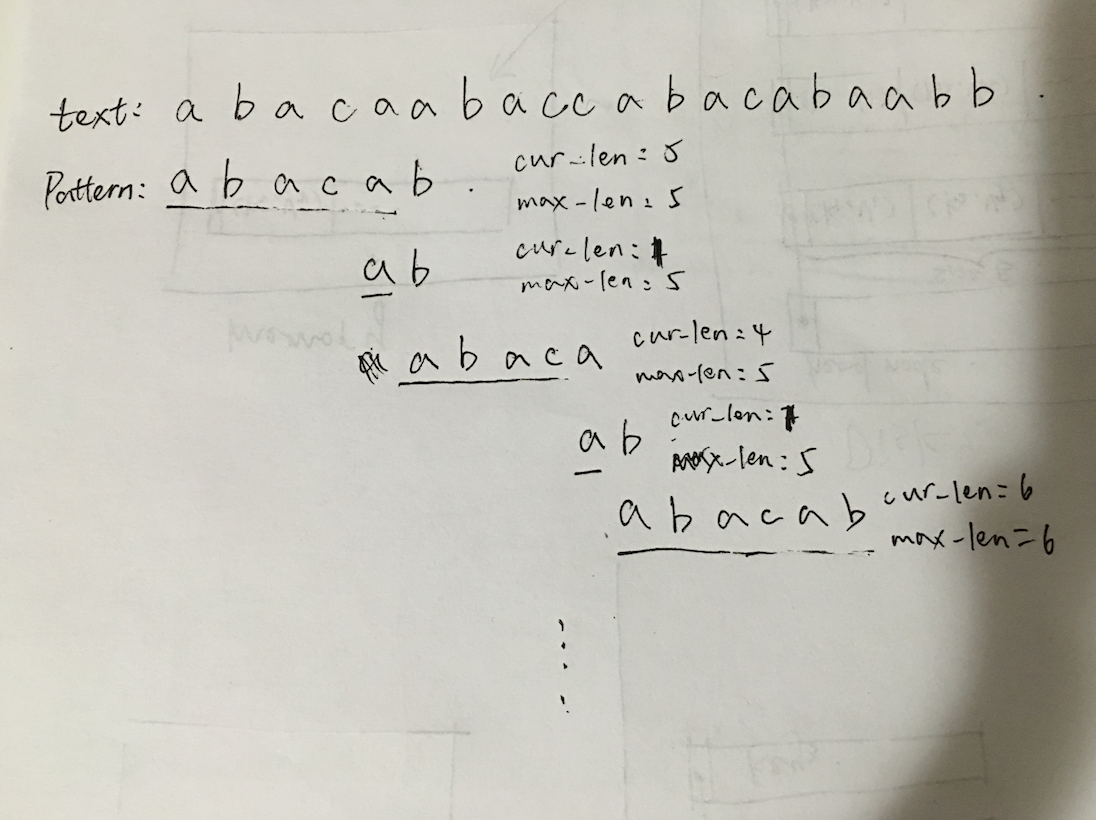 text: a b a c a a b a c c a b a c a b a a b b .
Pattern: a b a c a b .
cur-len = 5
max-len = 5
a b
cur-len = 1
max-len = 5
a b a c a
cur-len = 4
max-len = 5
a b
cur-len = 1
max-len = 5
a b a c a b
cur-len = 6
max-len = 6